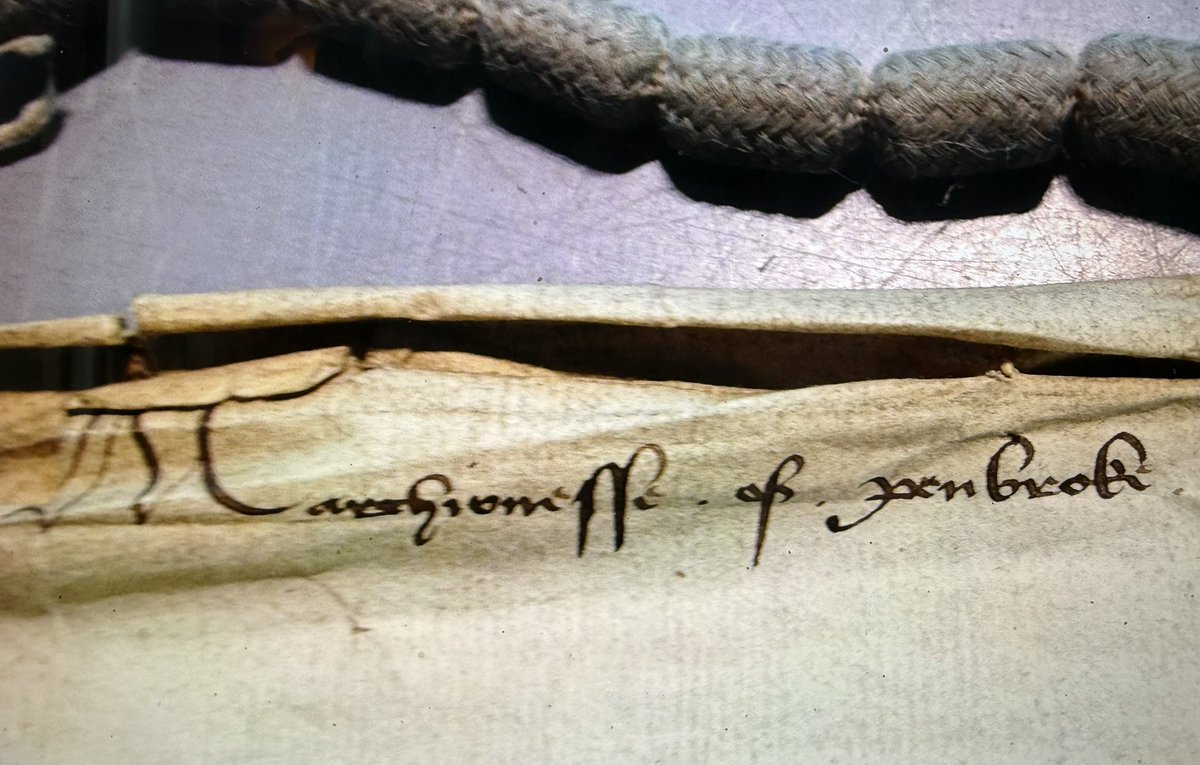 Marchionesse . of . penbroke